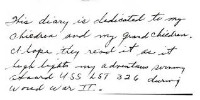 This diary is dedicated to my
children and my grandchildren.
I hope they read it as it
high lights my adventures
aboard USS LST 326 during
World War II.